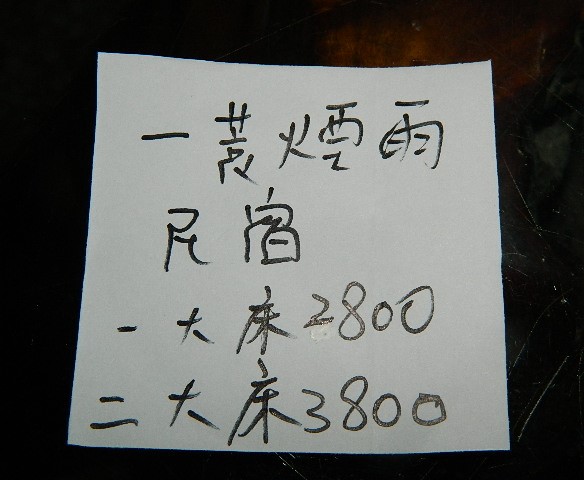 一蓑煙雨
民宿
一大床2800
二大床3800